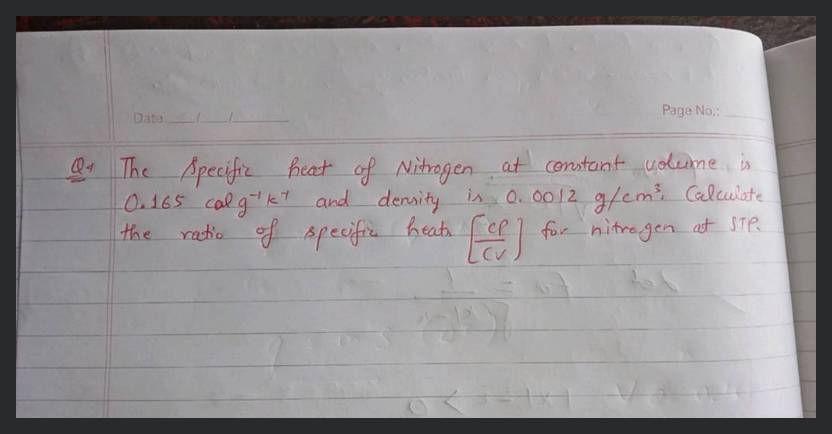 Date / /
Page No.:
Q1 The specific heat of Nitrogen at constant volume is
0.165 cal g⁻¹ k⁻¹ and density is 0.0012 g/cm³. Calculate
the ratio of specific heats [CP/CV] for nitrogen at STP.